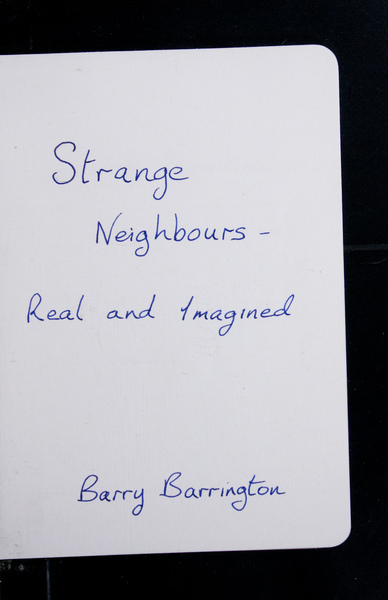 Strange
Neighbours -
Real and Imagined
Barry Barrington